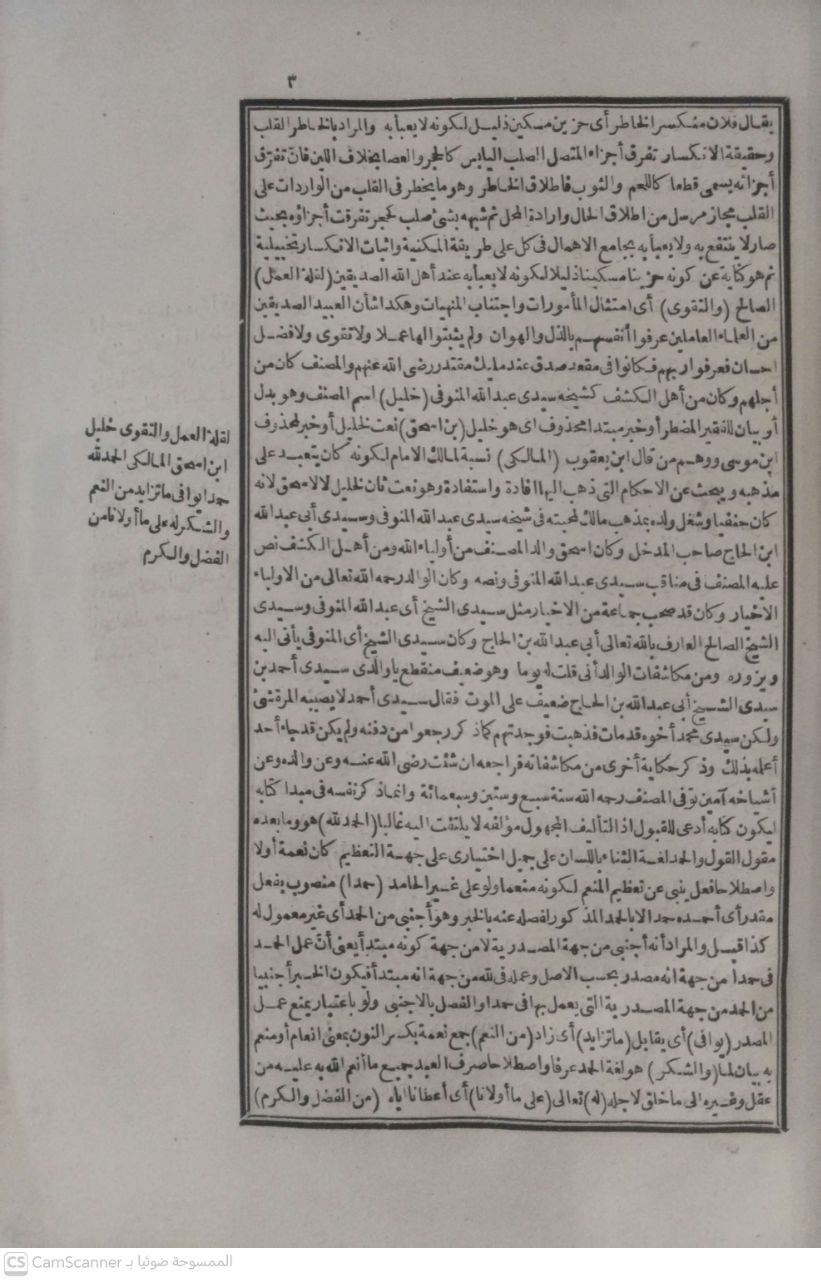 ٣
يقال فلان منكسر الخاطر أى حزين مسكين ذليل لكونه لا يعبأ به والمراد بالخاطر القلب
وحقيقة الانكسار تفرق أجزاء المتصل الصلب اليابس كالحجر والعصا بخلاف اللين فان تفرق
أجزائه يسمى قطعا كاللحم والثوب فاطلاق الخاطر وهو ما يخطر فى القلب من الواردات على
القلب مجاز مرسل من اطلاق الحال وارادة المحل ثم شبهه بشئ صلب كحجر تفرقت أجزاؤه بحيث
صار لا ينتفع به ولا يعبأ به بجامع الاهمال فى كل على طريقة المكنية واثبات الانكسار تخييلية
ثم هو كناية عن كونه حزينا مسكينا ذليلا لكونه لا يعبأ به عند أهل الله الصديقين (لقلة العمل)
الصالح (والتقوى) أى امتثال المأمورات واجتناب المنهيات وهكذا شأن العبيد الصديقين
من العلماء العاملين عرفوا أنفسهم بالذل والهوان ولم يثبتوا لها عملا ولا تقوى ولا فضل
احسان فعرفوا ربهم فكانوا فى مقعد صدق عند مليك مقتدر رضى الله عنهم والمصنف كان من
أجلهم وكان من أهل الكشف كشيخه سيدى عبد الله المنوفى (خليل) اسم المصنف وهو بدل
أو بيان للفقير المضطر أو خبر مبتدا محذوف اى هو خليل (ابن اسحق) نعت لخليل أو خبر لمحذوف
ابن موسى ووهم من قال ابن يعقوب (المالكى) نسبة لمالك الامام لكونه كان يتعبد على
مذهبه ويبحث عن الاحكام التى ذهب اليها افادة واستفادة وهو نعت ثان لخليل لا لاسحق لانه
كان حنفيا وشغل ولده بمذهب مالك لمحبته فى شيخه سيدى عبد الله المنوفى وسيدى أبى عبد الله
ابن الحاج صاحب المدخل وكان اسحق والد المصنف من أولياء الله ومن أهل الكشف نص
عليه المصنف فى مناقب سيدى عبد الله المنوفى ونصه وكان الوالد رحمه الله تعالى من الاولياء
الاخيار وكان قد صحب جماعة من الاخيار مثل سيدى الشيخ أى عبد الله المنوفى وسيدى
الشيخ الصالح العارف بالله تعالى أبى عبد الله بن الحاج وكان سيدى الشيخ أى المنوفى يأتى اليه
ويزوره ومن مكاشفات الوالد أنى قلت له يوما وهو ضعيف منقطع يا والدى سيدى أحمد بن
سيدى الشيخ أبى عبد الله بن الحاج ضعيف على الموت فقال سيدى أحمد لا يصيبه المرة شئ
ولكن سيدى محمد أخوه قد مات فذهبت فوجدتهم كما ذكر رجعوا من دفنه ولم يكن قد جاء أحد
أعلمه بذلك وذكر حكاية أخرى من مكاشفاته فراجعه ان شئت رضى الله عنه وعن والده وعن
أشياخه آمين توفى المصنف رحمه الله سنة سبع وستين وسبعمائة وانما ذكر نفسه فى مبدا كتابه
ليكون كتابه أدعى للقبول اذ التأليف المجهول مؤلفه لا يلتفت اليه غالبا (الحمد لله) هو وما بعده
مقول القول والحمد لغة الثناء باللسان على جميل اختيارى على جهة التعظيم كان نعمة أولا
واصطلاحا فعل ينبى عن تعظيم المنعم لكونه منعما ولو على غير الحامد (حمدا) منصوب بفعل
مقدر أى أحمده حمدا لا بالحمد المذكور لفصله عنه بالخبر وهو أجنبى من الحمد أى غير معمول له
كذا قيل والمراد أنه أجنبى من جهة المصدرية لا من جهة كونه مبتدأ يعنى أن عمل الحمد
فى حمدا من جهة انه مصدر بحسب الاصل وعمله فى لله من جهة انه مبتدأ فيكون الخبر أجنبيا
من الحمد من جهة المصدرية التى يعمل بها فى حمدا والفصل بالاجنبى ولو باعتبار يمنع عمل
المصدر (يوافى) أى يقابل (ما تزايد) أى زاد (من النعم) جمع نعمة بكسر النون بمعنى انعام أو منعم
به بيان لما (والشكر) هو لغة الحمد عرفا واصطلاحا صرف العبد جميع ما أنعم الله به عليه من
عقل وغيره الى ما خلق لاجله (له) تعالى (على ما أولانا) أى أعطانا اياه (من الفضل والكرم)
لقلة العمل والتقوى خليل
ابن اسحق المالكى الحمد لله
حمدا يوافى ما تزايد من النعم
والشكر له على ما أولانا من
الفضل والكرم
CS CamScanner الممسوحة ضوئيا بـ